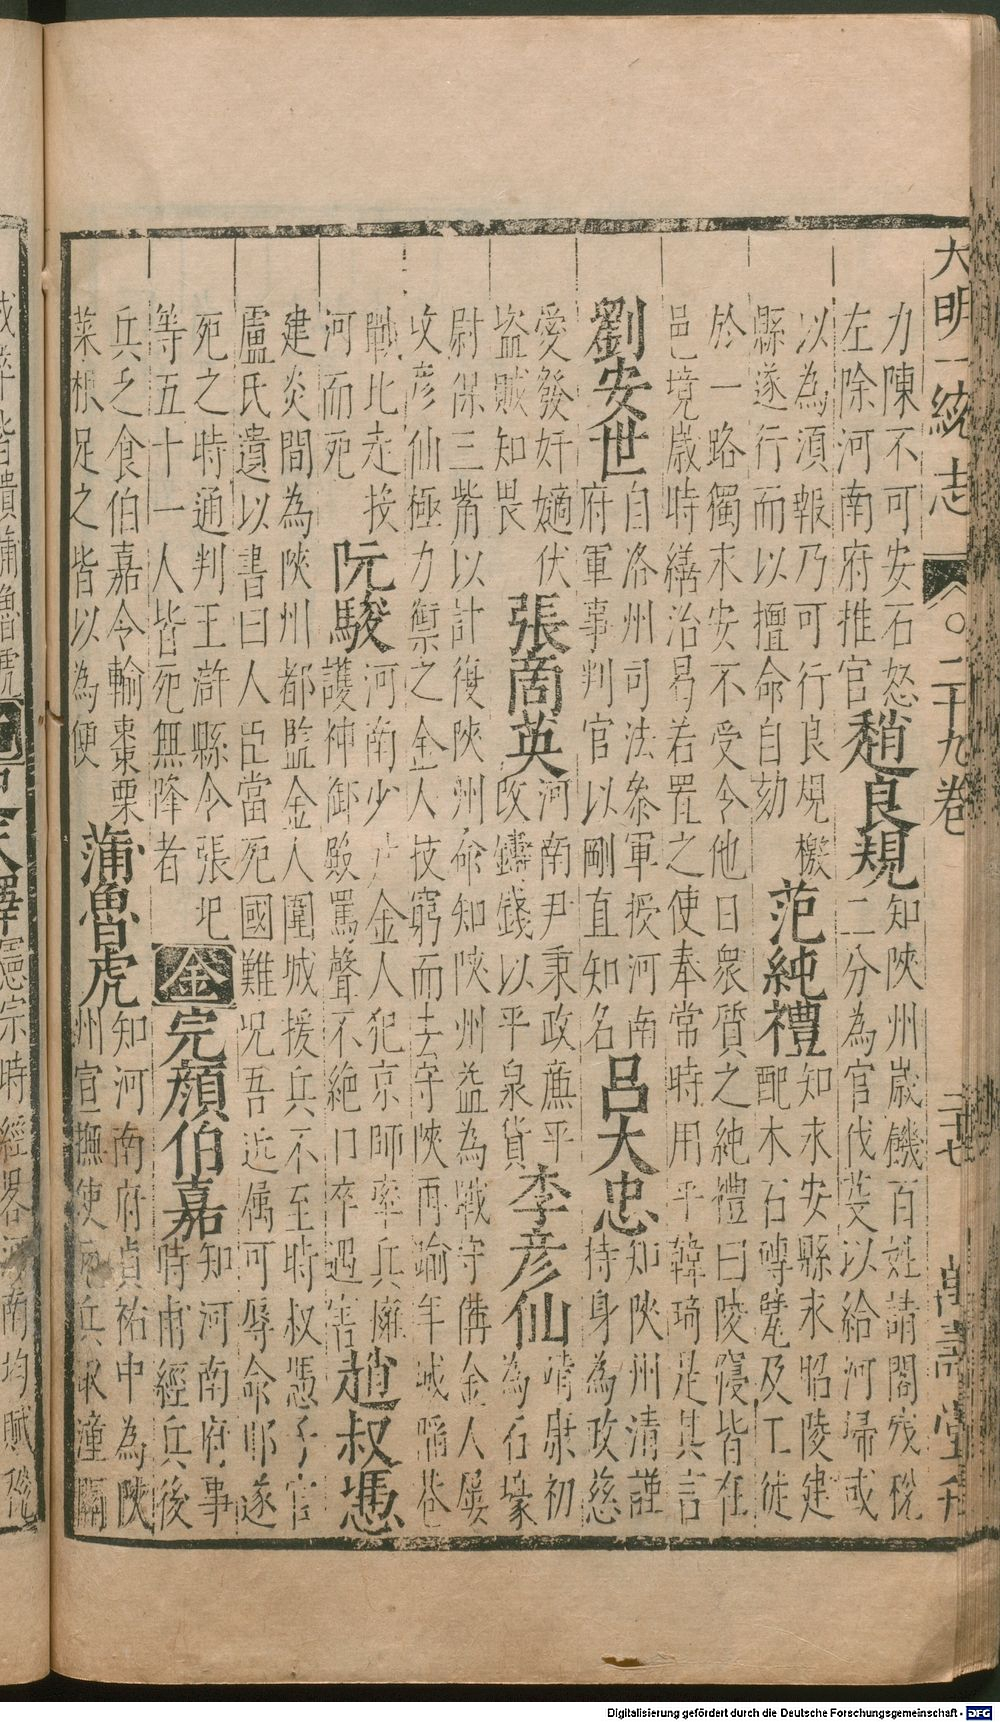 大明一統志 〇二十九卷 三十七 萬壽堂刊
力陳不可安石怒
左除河南府推官
趙良規
知陝州歲饑百姓請閣殘稅
二分為官伐芟以給河埽或
以為須報乃可行良規檄
縣遂行而以擅命自劾
范純禮
知永安縣永昭陵建
配木石磚甓及工徒
於一路獨永安不受令他日衆質之純禮曰陵寢皆在
邑境歲時繕治曷若置之使奉常時用乎韓琦是其言
劉安世
自洛州司法叅軍授河南
府軍事判官以剛直知名
呂大忠
知陝州清謹
持身為政慈
愛發奸擿伏
盜賊知畏
張商英
河南尹秉政廉平
改鑄錢以平泉貨
李彥仙
靖康初
為石壕
尉保三觜以計復陝州命知陝州益為戰守備金人屢
攻彥仙極力禦之金人技窮而去守陝再踰年城陷巷
戰比走投
河而死
阮駿
河南少尹金人犯京師率兵
護神御殿罵聲不絕口卒遇害
趙叔憑
建炎間為陝州都監金人圍城援兵不至時叔憑子官
盧氏遺以書曰人臣當死國難况吾近属可辱命耶遂
死之時通判王滸縣令張玘
等五十一人皆死無降者
金
完顏伯嘉
知河南府事
時甫經兵後
兵乏食伯嘉令輸棗栗
菜根足之皆以為便
蒲魯虎
知河南府貞祐中為陝
州宣撫使兵取潼關
憲宗時經畧河南均賦稅
Digitalisierung gefördert durch die Deutsche Forschungsgemeinschaft - DFG